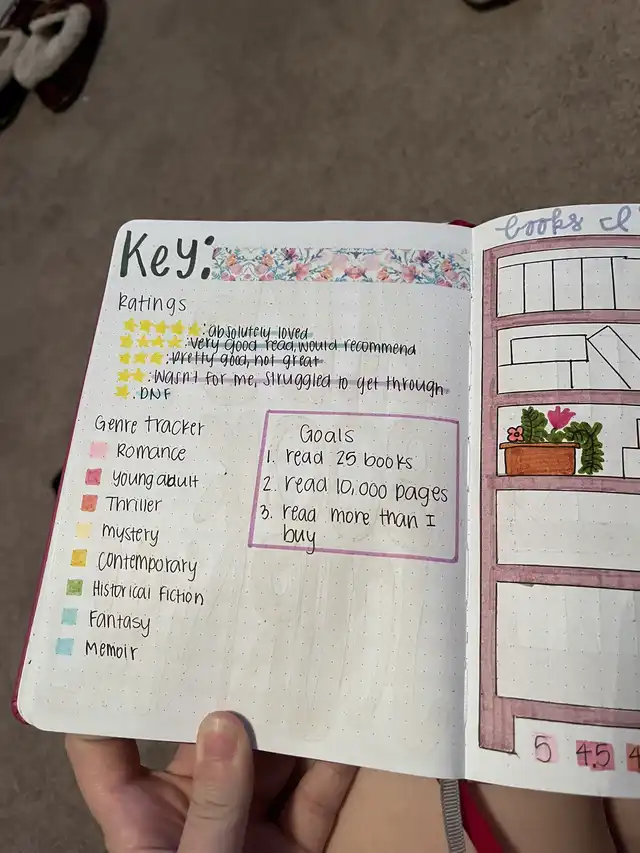 Key:
Ratings
: absolutely loved
: very good read, would recommend
: pretty good, not great
: wasn't for me, struggled to get through
: DNF
Genre tracker
Romance
young adult
Thriller
mystery
contemporary
Historical Fiction
Fantasy
Memoir
Goals
1. read 25 books
2. read 10,000 pages
3. read more than I
buy
books
5 4.5 4